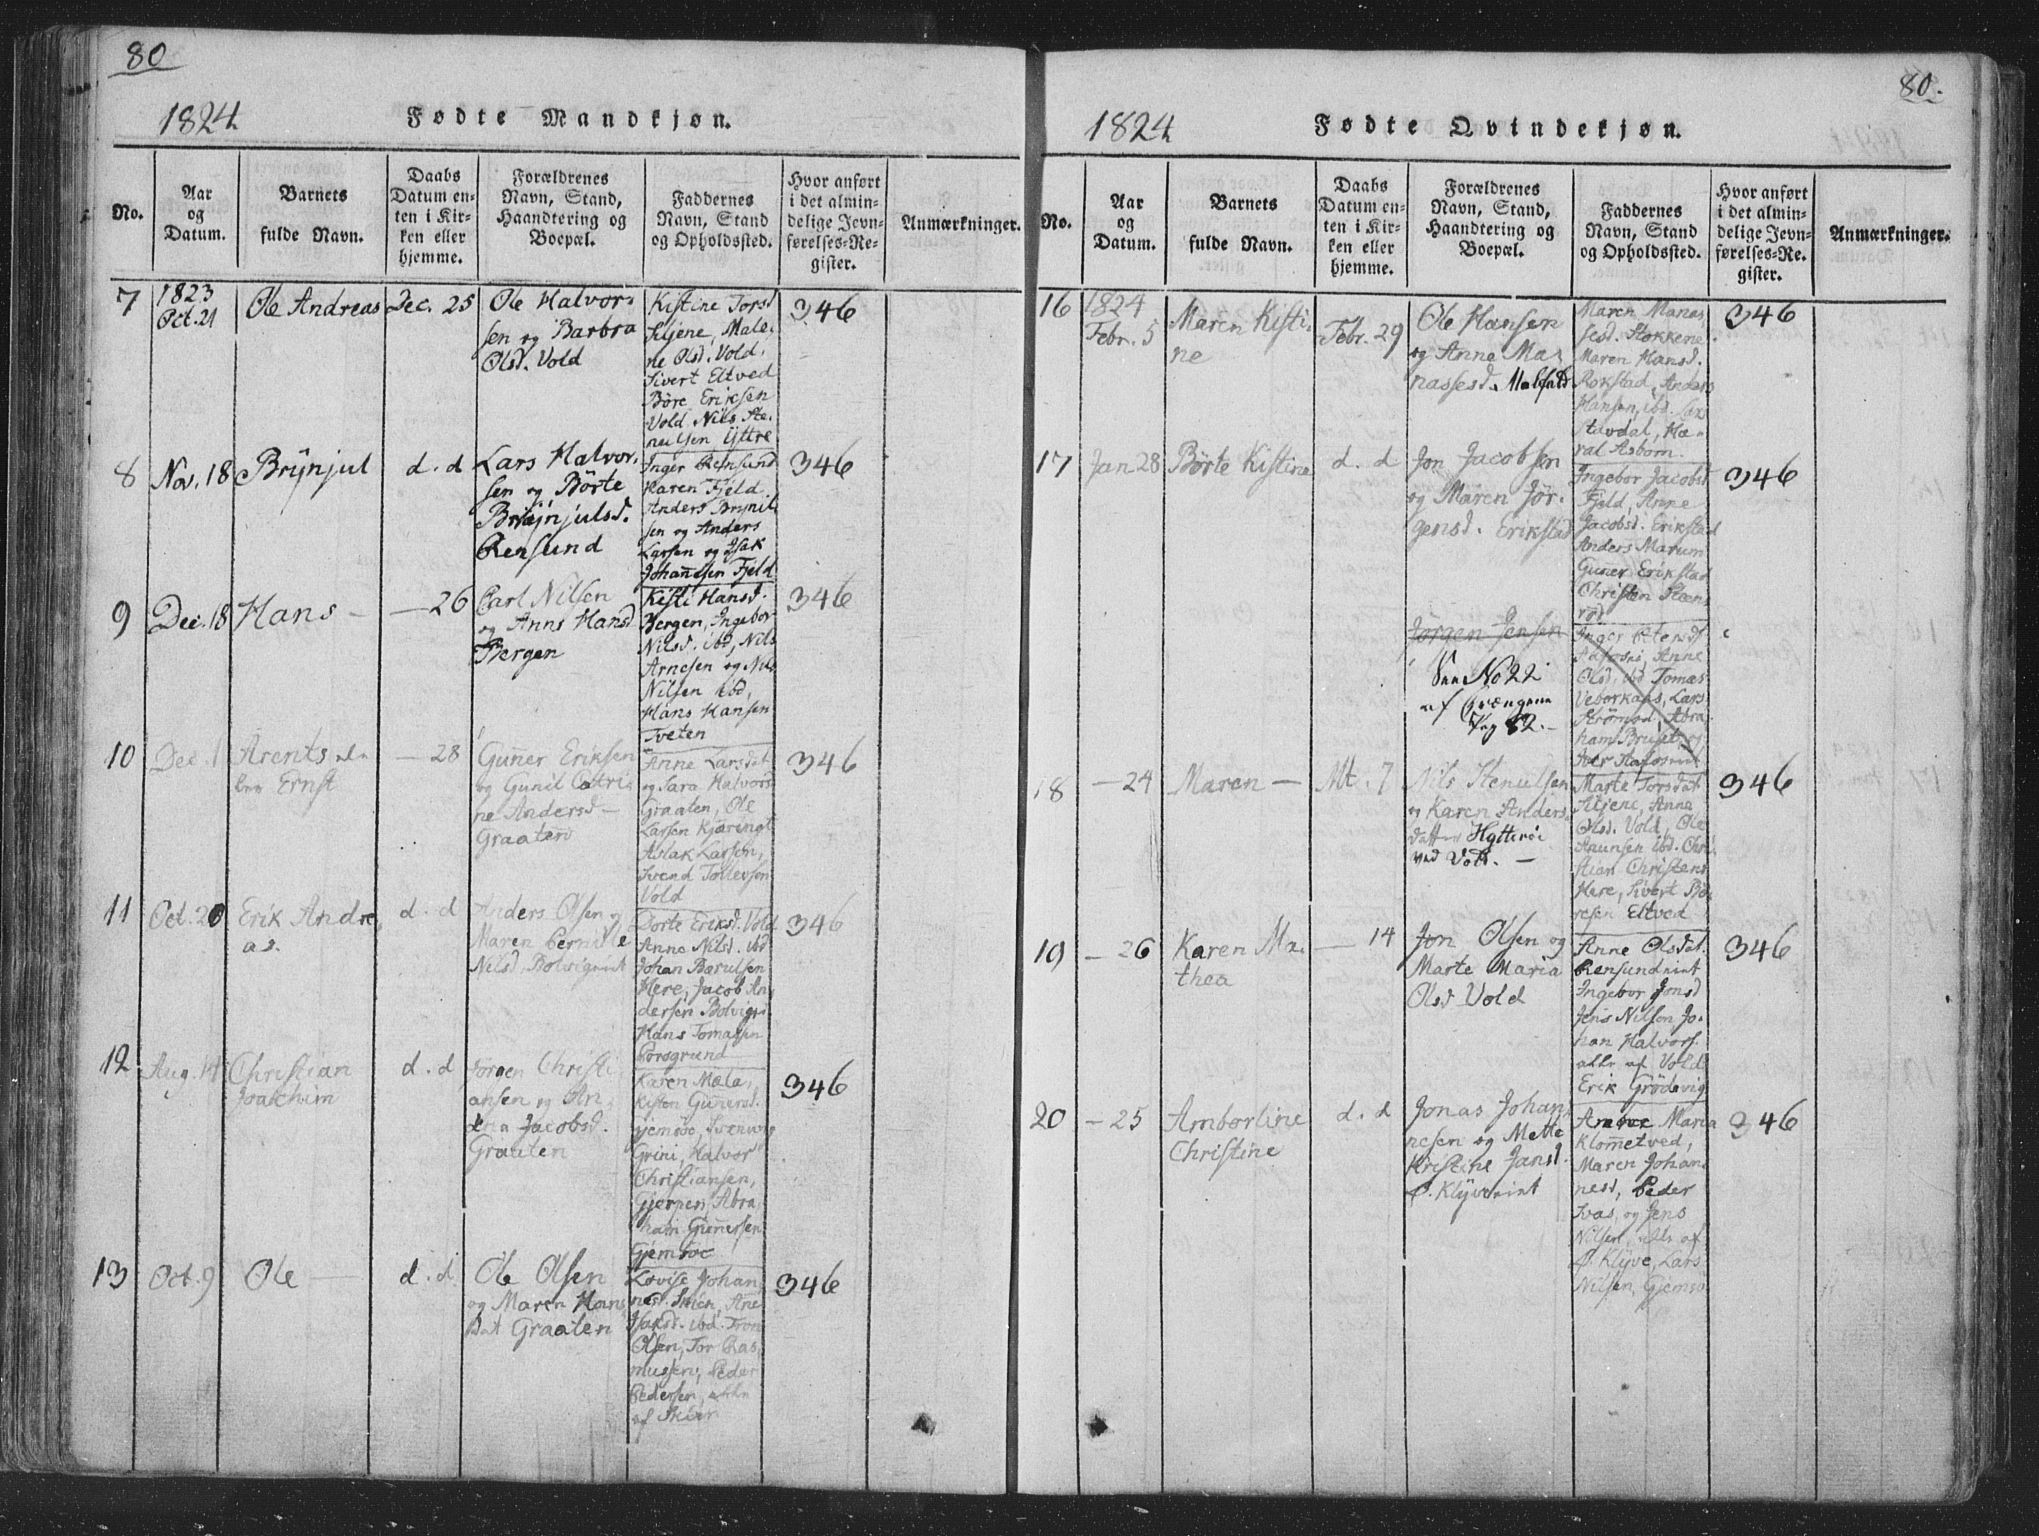 80
1824
Fødte Mandkjøn.
No.
Aar
og
Datum.
Barnets
fulde Navn.
Daabs
Datum en-
ten i Kir-
ken eller
hjemme.
Forældrenes
Navn, Stand,
Haandtering og
Boepæl.
Faddernes
Navn, Stand
og Opholdssted.
Hvor anført
i det almin-
delige Jevn-
førelses-Re-
gister.
Anmærkninger.
7
1823
Oct. 21
Ole Andreas
Dec. 25
Ole Halvor-
sen og Barbra
Olsd. Vold
Kistine Torsd
Stjene, Male-
ne Olsd. Vold,
Sivert Eltved
Børe Eriksen
Vold, Nils Ste-
nulsen Yttre
346
8
Nov. 18
Brÿnjul
d. d
Lars Halvor-
sen og Börte
Brÿnjulsd.
Rensund
Inger Rensund
Karen Fjeld
Anders Brynil
sen og Anders
Larsen og Isak
Johannesen Fjeld
346
9
Dec. 18
Hans
26
Carl Nilsen
og Anne Hansd
Bergen
Kisti Hansd.
Bergen, Ingebor
Nilsd. ibd, Nils
Arnesen og Nils
Nilsen ibd,
Hans Hansen
Tveten
346
10
Dec. 1
Arents el-
ler Ernst
28
Guner Eriksen
og Gunil Catri-
ne Andersd
Graaten
Anne Larsdat
og Sara Halvors
Graaten, Ole
Larsen Kjæringt
Aslak Larsen,
Svend Tollevsen
Vold
346
11
Oct. 20
Erik Andre-
as.
d. d
Anders Olsen og
Maren Pernille
Nilsd. Bolvigeint
Dorte Eriksd. Vold
Anne Nilsd. ibd
Johan Barulsen
Here, Jacob An-
dersen Bolvig,
Hans Tomassen
Porsgrund
346
12
Aug. 14
Christian
Joachim
d. d
Jörgen Christi
ansen og An-
dria Jacobsd.
Graaten
Karen Mæla,
Kisten Gunersd.
Gjemsöe, Svennung
Grini, Halvor
Christiansen,
Gjerpen, Abra-
ham Gunersen
Gjemsöe
346
13
Oct. 9
Ole
d. d.
Ole Olsen
og Maren Hans
Dat Graaten
Lovise Johan-
nesd. Skien, Ane
Isaksd. ibd. Tron
Olsen, Tor Ras-
mussen, Peder
Pedersen, alle
af Skien
346
80.
1824
Fødte Qvindekjøn.
No.
Aar
og
Datum.
Barnets
fulde Navn.
Daabs
Datum en-
ten i Kir-
ken eller
hjemme.
Forældrenes
Navn, Stand,
Haandtering og
Boepæl.
Faddernes
Navn, Stand
og Opholdssted.
Hvor anført
i det almin-
delige Jevn-
førelses-Re-
gister.
Anmærkninger.
16
1824
Febr. 5
Maren Kisti-
ne
Febr. 29
Ole Hansen
og Anne Ma-
nassesd.
Maren Manas-
sesd. Stokkene
Maren Hansd.
Rokstad, Anders
Hansen, ibd. Lars
Stavdal, Ha-
ral Asborn.
346
17
Jan 28
Börte Kistine
d. d
Jon Jacobsen
og Maren Jör-
gensd. Erikstad
Ingebor Jacobsd
Fjeld, Anne
Jacobsd. Erikstad
Anders Marum
Guner Erikstad
Christen Stens-
rød
346
Jörgen Jensen
See No 22
af
Pag 82.
Inger Olensd
Anne
Olsd. ibd Tomas
Veborkaas, Lars
Strömsd, Abra-
ham Bruset og
Iver
18
24
Maren
Mt. 7
Nils Stenulsen
og Karen Anders
datter Hytteröe
ved Vold.
Marte Torsdat
Stjene, Anna
Olsd. Vold, Ole
Paunsen ibd. Chri
stian Christens
Here, Sivert Bö-
resen Eltved
346
19
26
Karen Ma-
thea
14
Jon Olsen og
Marte Maria
Olsd Vold
Anne Olsdat.
Rensundeint
Ingebor Jonsd
Jens Nilsen Jo-
han Halvors.
alle af Vold
Erik Grödevig
346
20
25
Amborline
Christine
d. d
Jonas Johan
nesen og Mette
Kristine Jansd.
Ö. Klÿveeint
Maria
Klometved,
Maren Johan-
nesd, Peder
Ivas, og Jens
Nilsen, alle af
Ö. Klÿve, Lars
Nilsen, Gjemsö
346